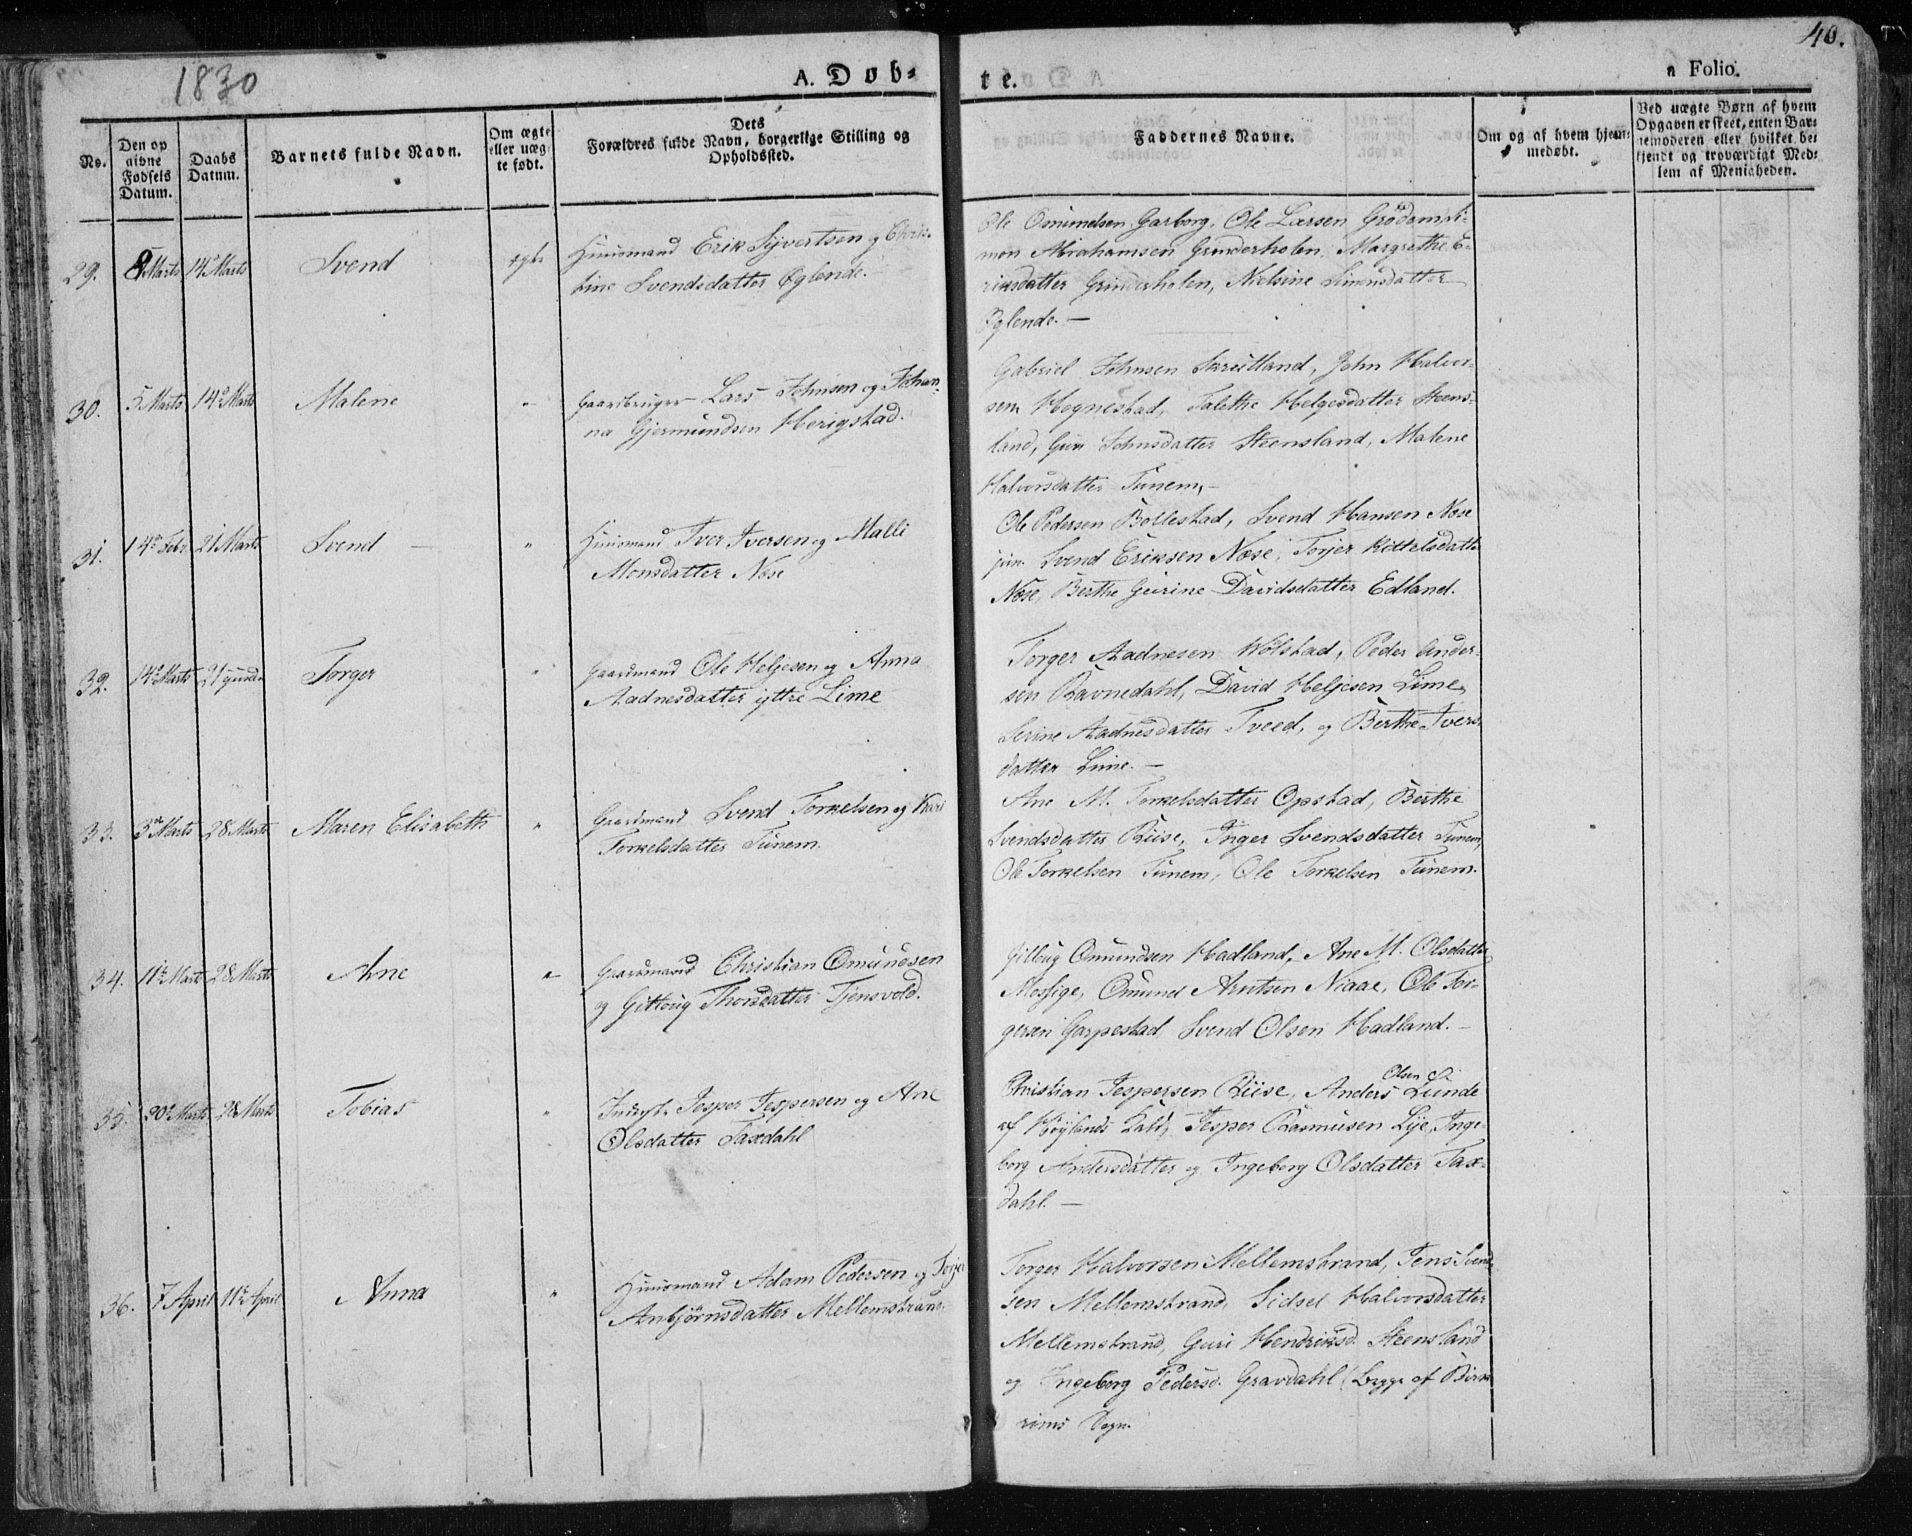 1830
A. Døb-
te.
40.
n Folio.
No.
Den op
givne
Fødsels
Datum.
Daabs
Datum.
Barnets fulde Navn.
Om ægte
eller uæg-
te født.
Dets
Forældres fulde Navn, borgerlige Stilling og
Opholdssted.
Faddernes Navne.
Om og af hvem hjem-
medøbt.
Ved uægte Børn af hvem
Opgaven er skeet, enten Bar-
nemoderen eller hvilket be-
kjendt og troværdigt Med-
lem af Menigheden.
29.
8 Marts
14 Marts
Svend
egte
Huusmand Erik Syvertsen og Chris-
tine Svendsdatter Øglende.
Ole Omundsen Garborg, Ole Larsen Grødem Si-
mon Abrahamsen Grinderholen, Margrethe E-
riksdatter Grinderholen, Nielsine Simonsdatter
Øglende. —
30.
5 Marts
14 Marts
Malene
"
Gaardbruger Lars Johnsen og Johan-
na Gjermundsen Herigstad.
Gabriel Johnsen Skrutland, John Halvor-
sen Hognestad, Talethe Helgesdatter Steens-
land, Guri Johnsdatter Steensland, Malene
Halvorsdatter Tunem, —
31.
14 Febr
21 Marts
Svend —
"
Huusmand Iver Iversen og Malli
Monsdatter Nøse
Ole Pedersen Bollestad, Svend Hansen Nøse
jun. Svend Eriksen Nøse, Torjer Kittelsdatter
Nøse, Berthe Gurine Davidsdatter Edland.
32.
14 Marts
21 ejusd.
Torger
"
Gaardmand Ole Heljesen og Anna
Aadnesdatter yttre Lime
Torger Aadnesen Wølstad, Peder Ander-
sen Ravnedahl, David Heljesen Lime,
Serine Aadnesdatter Tveed, og Berthe Ivers-
datter Lime. —
33.
3 Marts
28 Marts
Maren Elisabeth
"
Gaardmand Svend Torkelsen og Kari
Torkelsdatter Tunem.
Ane M. Torkelsdatter Opstad, Berthe
Svendsdatter Riise, Inger Svendsdatter Tunem,
Ole Torkelsen Tunem, Ole Torkelsen Tunem.
34.
11te Marts
28 Marts
Ane
"
Gaardmand Christian Omundsen
og Gitloug Thorsdatter Tjensvold.
Gitloug Omundsen Hadland, Ane M. Olsdatter
Mossige, Omund Arntsen Niaae, Ole Tor-
gersen Garpestad, Svend Olsen Hadland. —
35.
20 Marts
28 Marts
Tobias
"
Inderst Jesper Jespersen og Ane
Olsdatter Taxdahl
Christian Jespersen Riise, Anders Olsen Lunde
af Høylands Kald, Jesper Rasmusen Lye, Inge-
borg Andersdatter og Ingeborg Olsdatter Tax-
dahl. —
36.
7 April
11te April
Anna
"
Huusmand Adam Pedersen og Torjer
Anbjørnsdatter Mellemstrand.
Torger Halvorsen Mellemstrand, Jens Svend-
sen Mellemstrand, Sidsel Halvorsdatter
Mellemstrand, Guri Hendriksd. Steensland
og Ingeborg Pedersd. Gravdahl (begge af Birk-
rims Sogn.